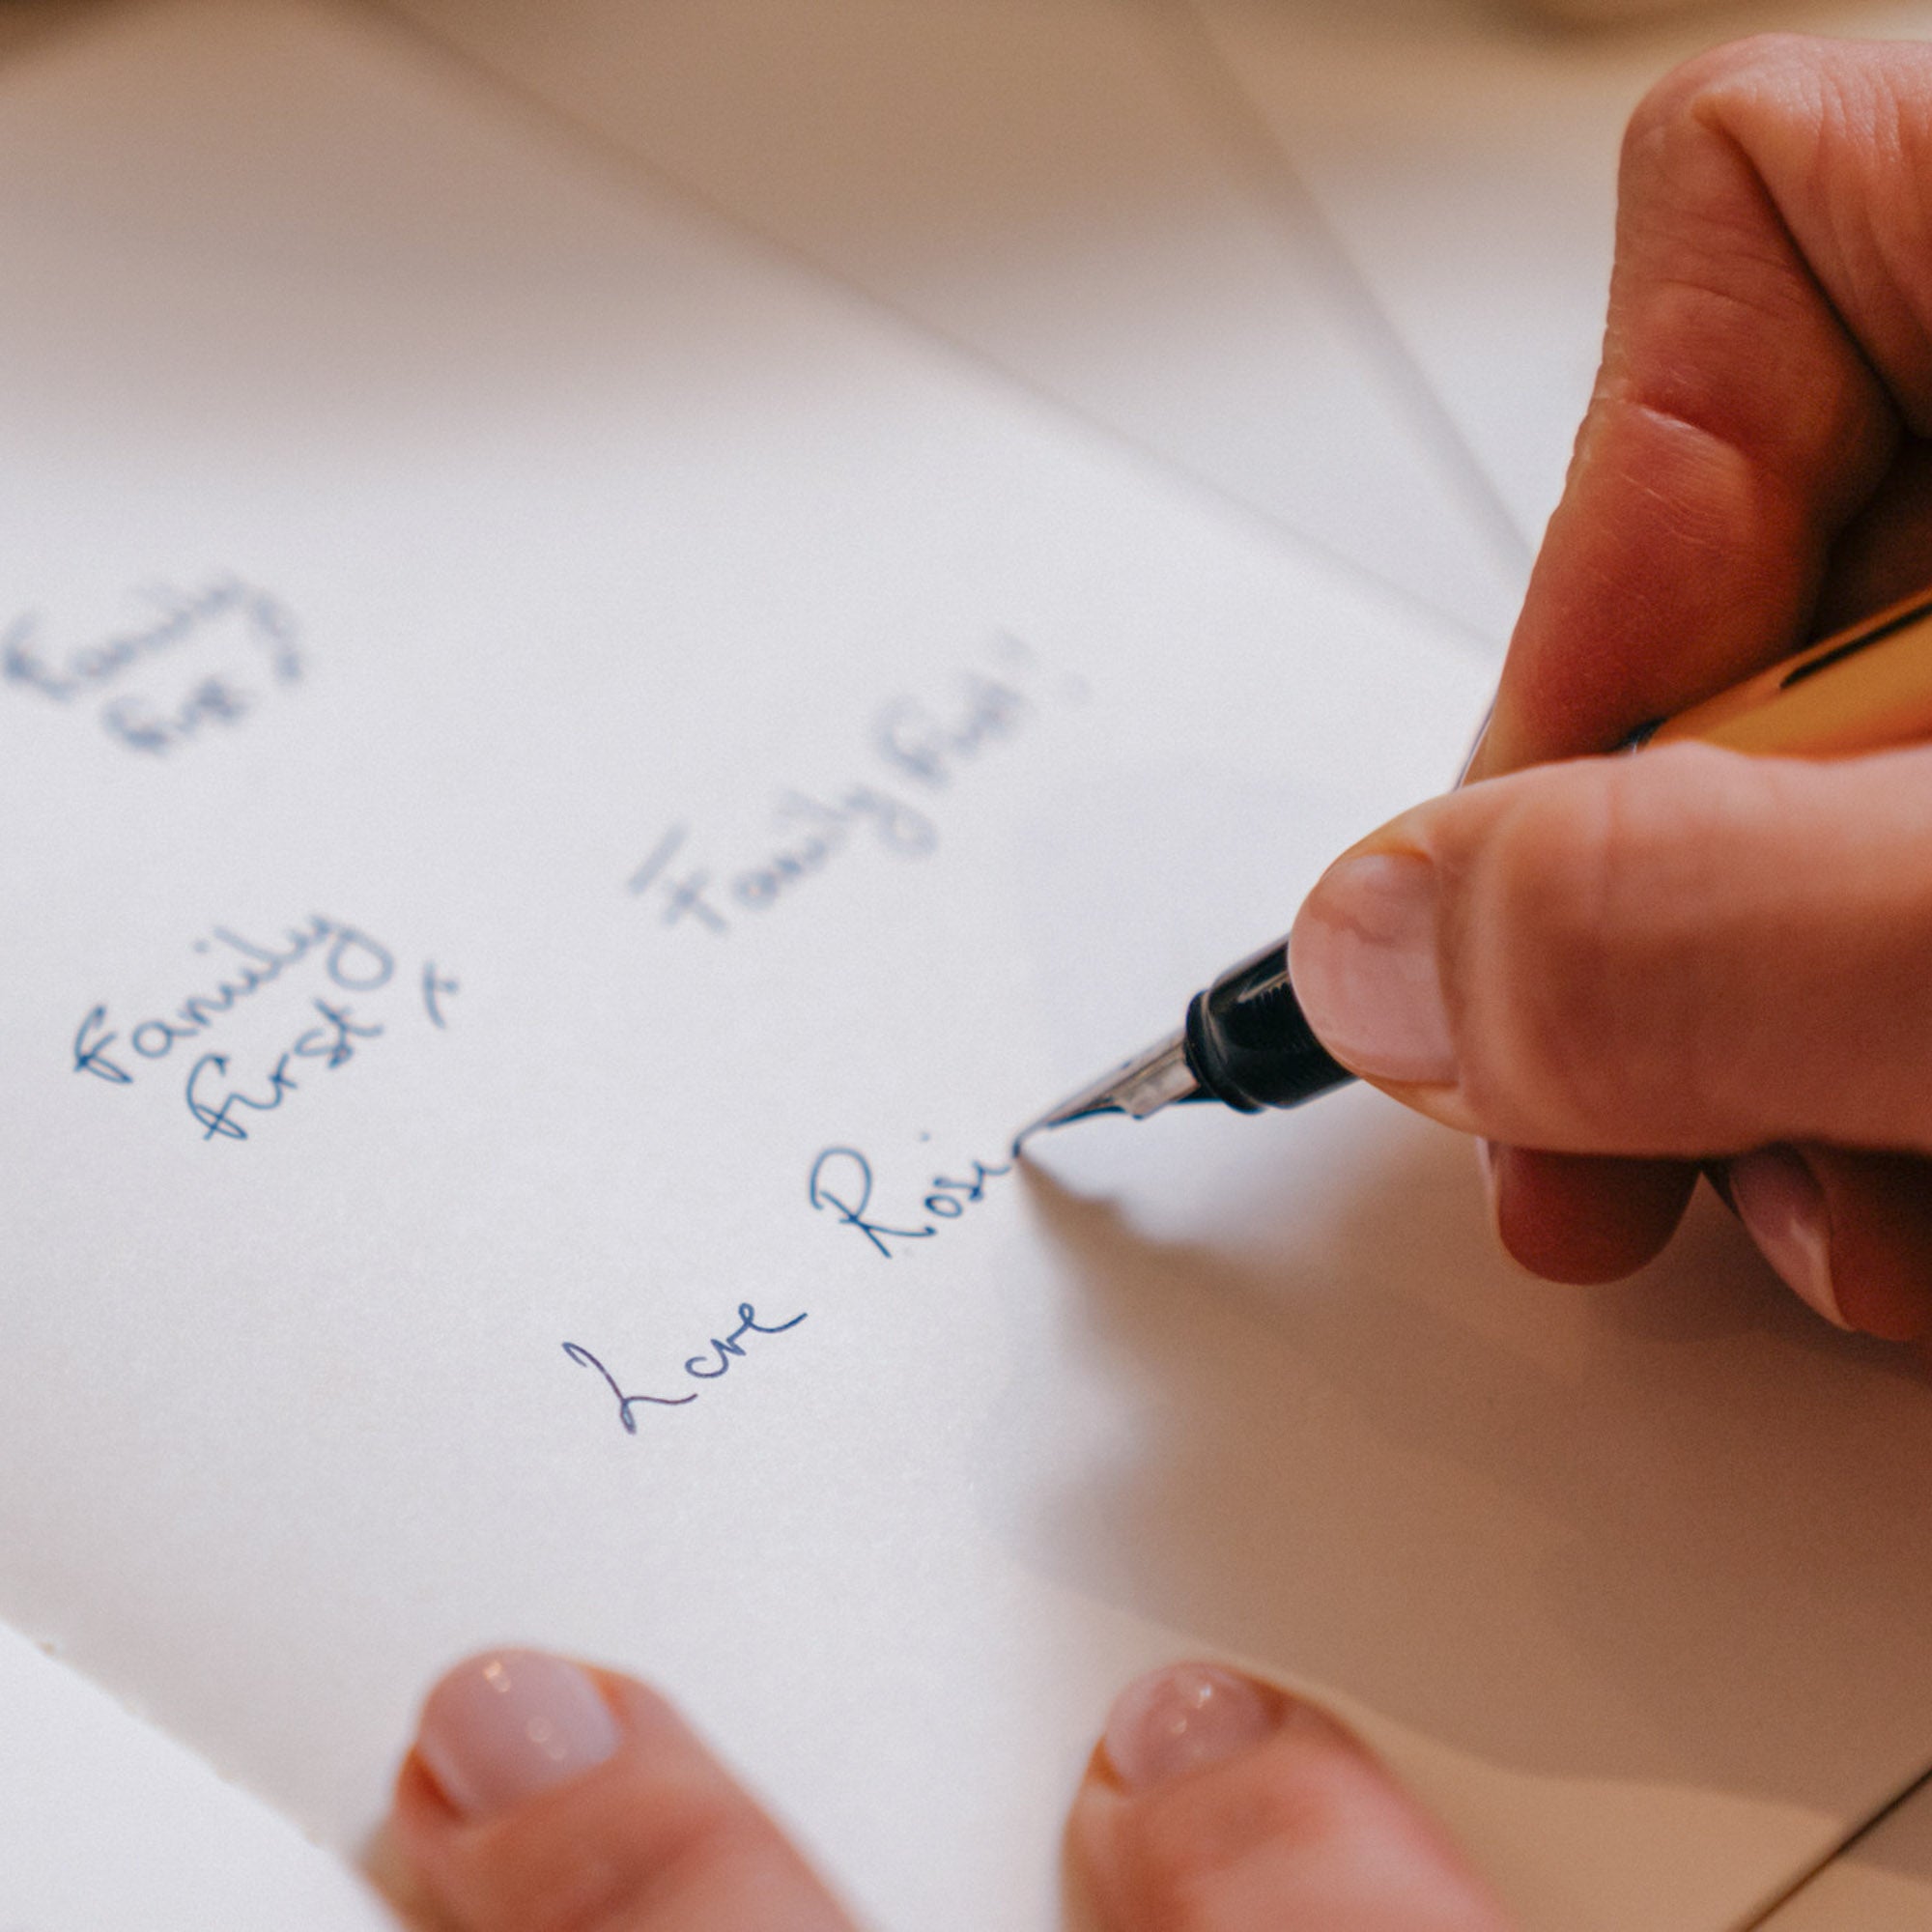 Family
first
Family First!
Family
first
Love Rosi